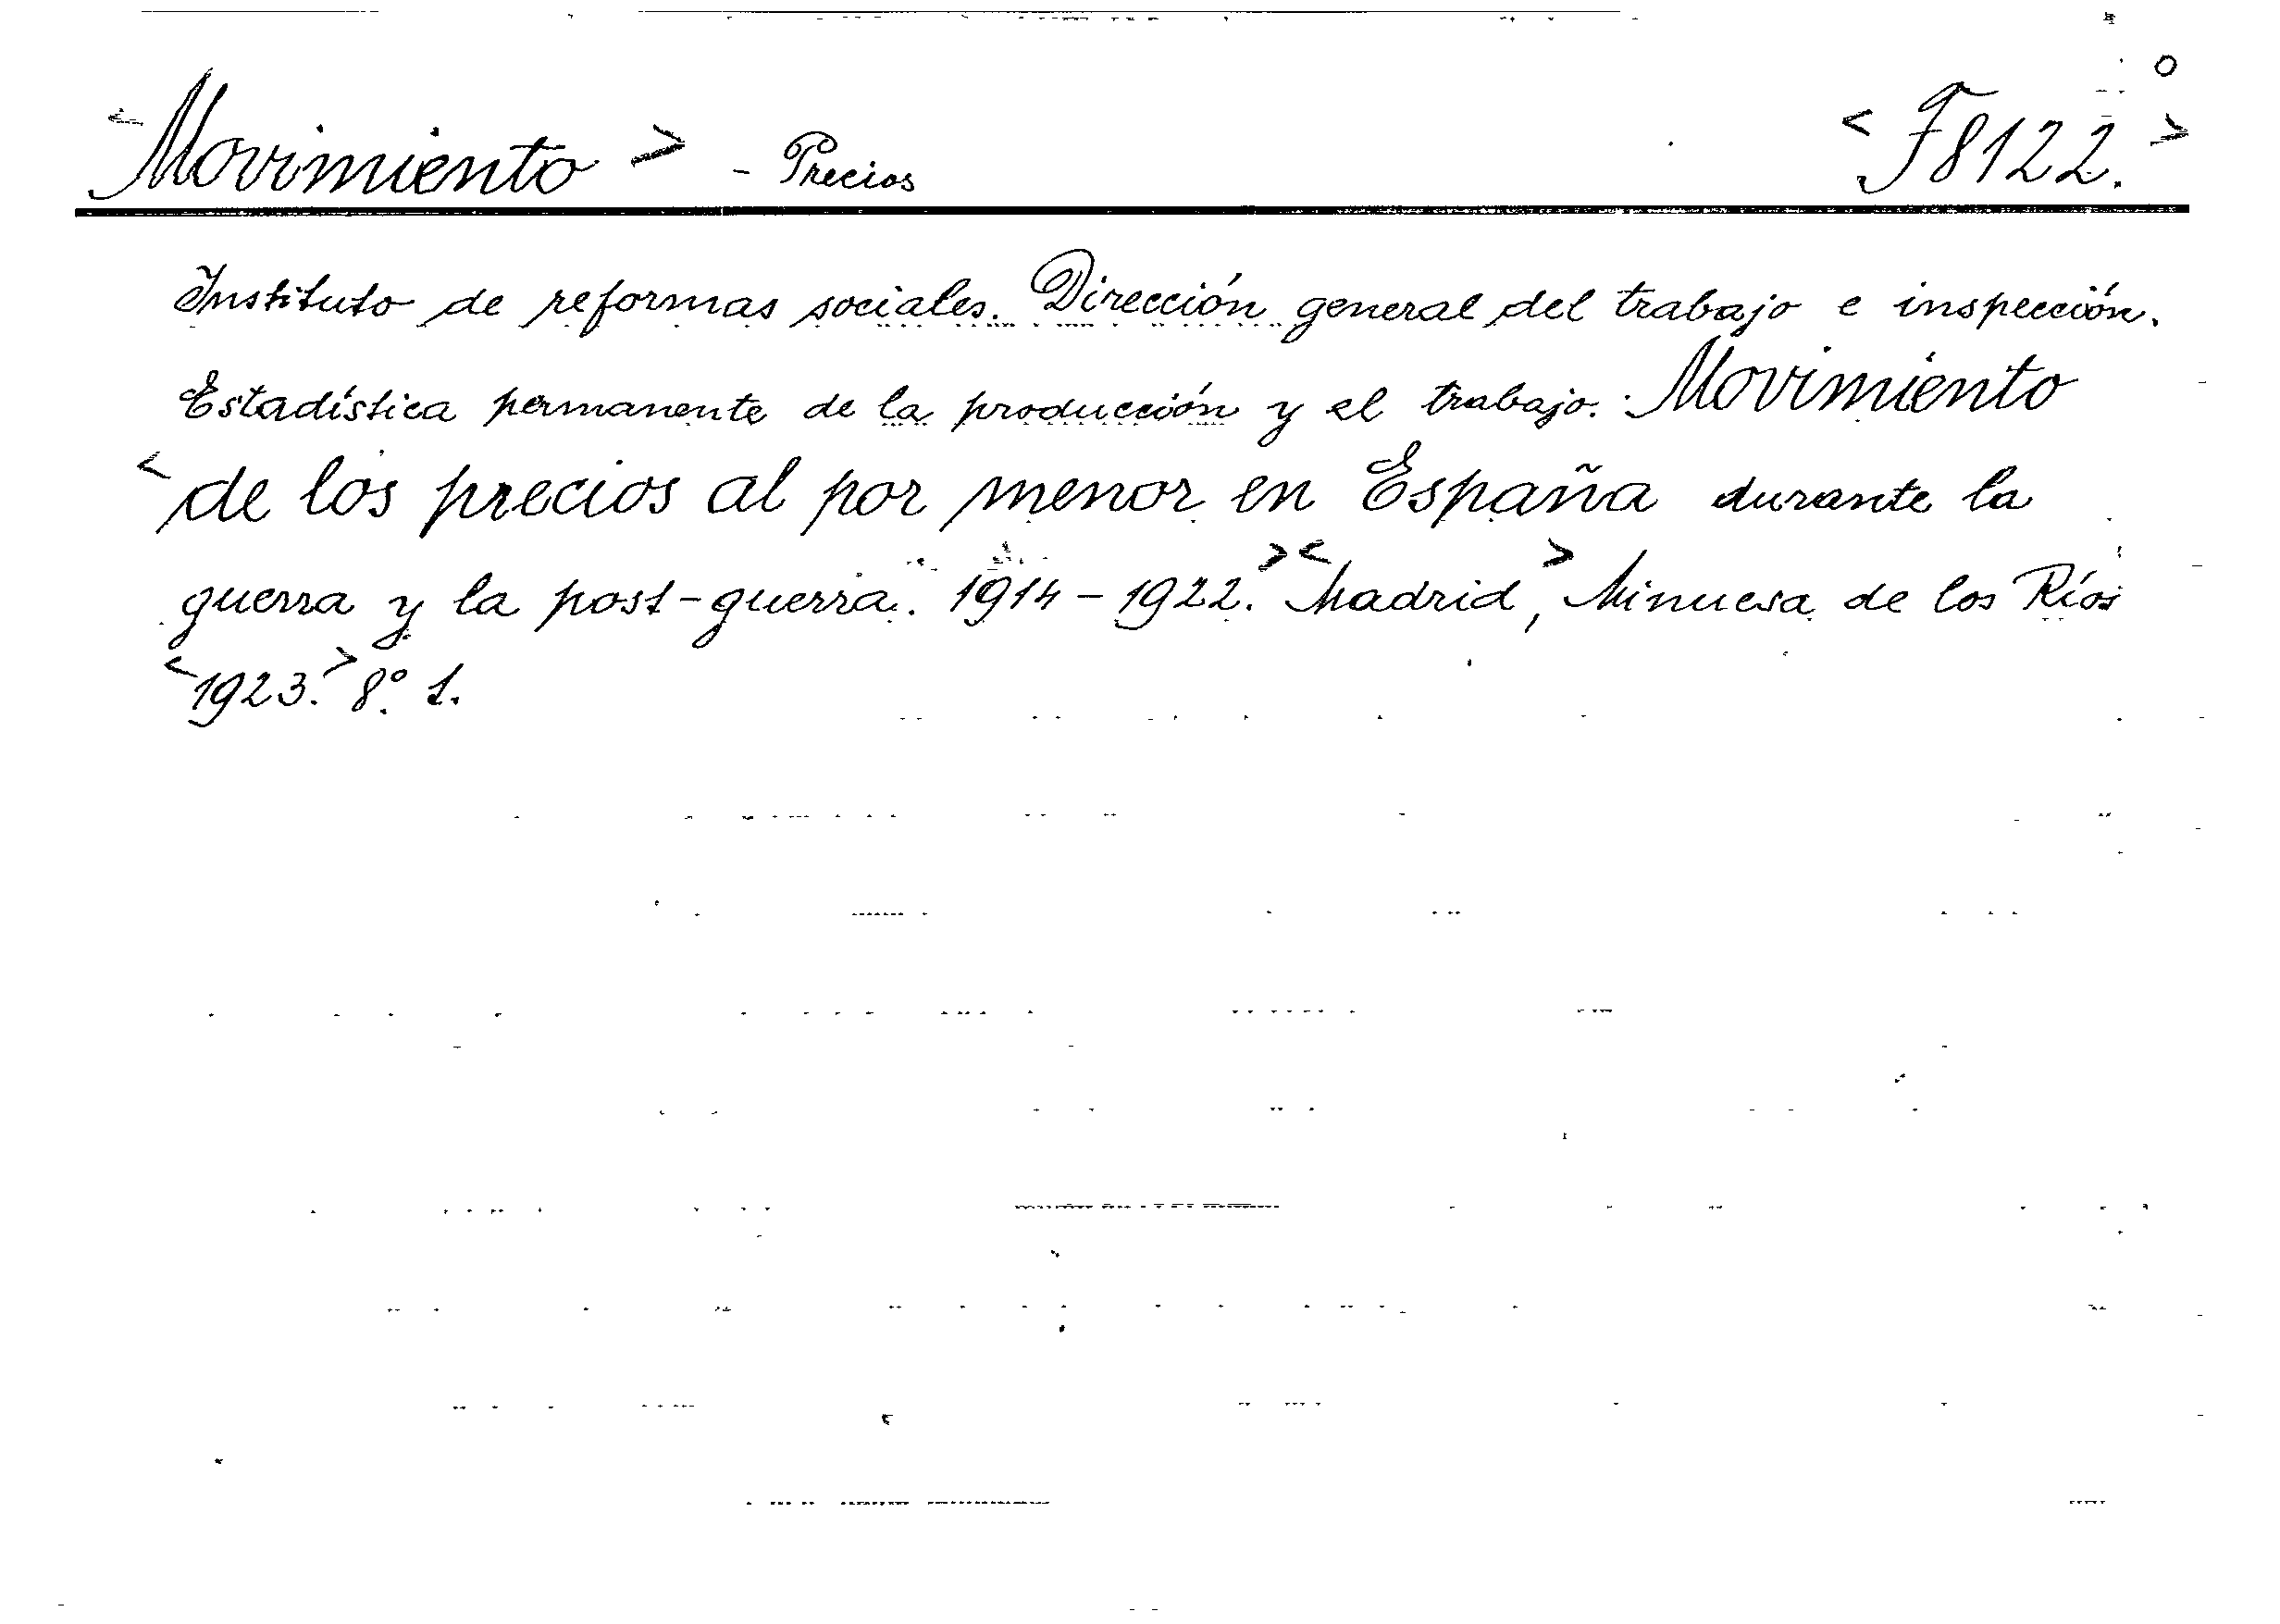 <Movimiento> - Precios <F8122.>
Instituto de reformas sociales. Dirección general del trabajo e inspección.
Estadística permanente de la producción y el trabajo. Movimiento
<de los precios al por menor en España durante la
guerra y la post-guerra. 1914-1922.> <Madrid>, Minuesa de los Ríos
<1923.> 8º. 1.